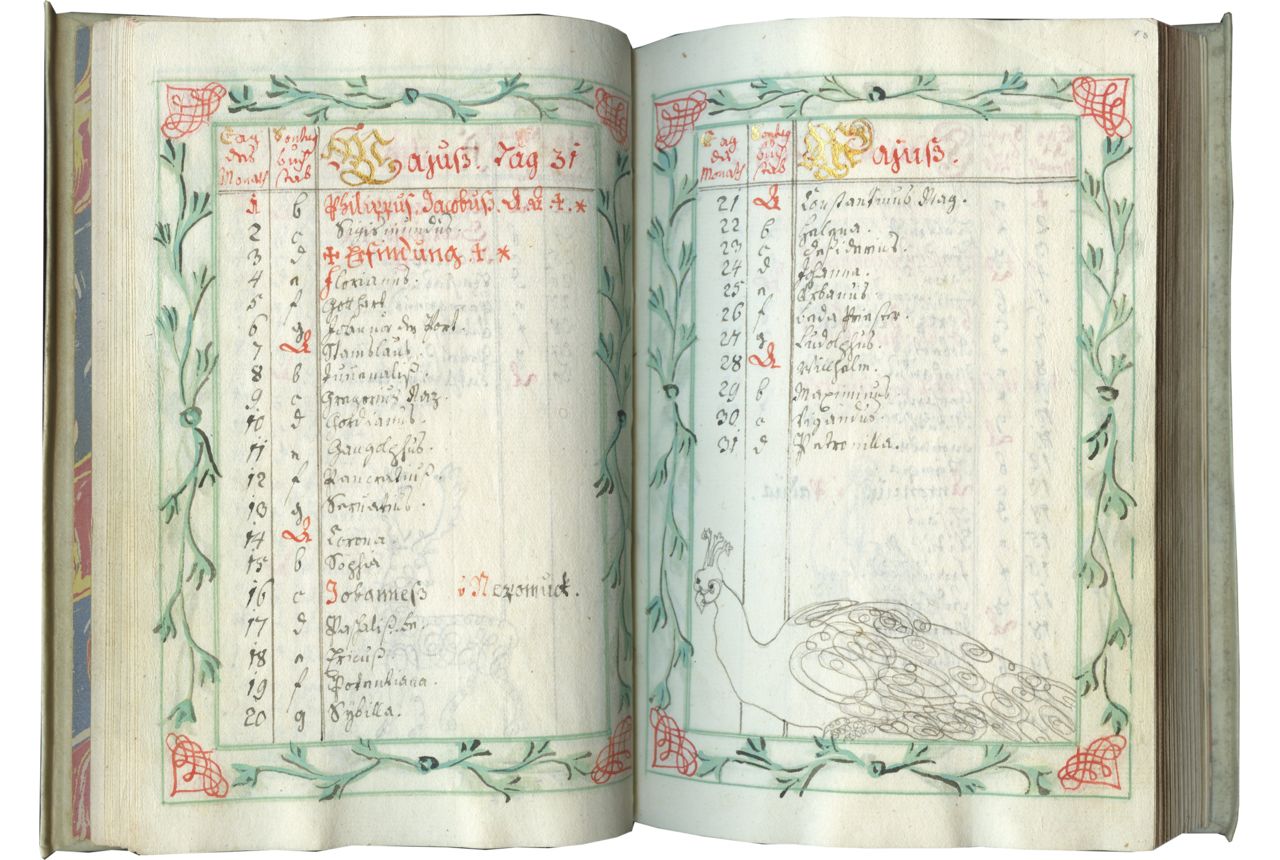 Tag Sontag
des buch
Monats stab
Majuß. Tag 31
1 b Philippus. Jacobuß. A. A. +. *
2 c Sigismundus.
3 d + Erfindung. +. *
4 e Florianus.
5 f Gothart
6 g Joannes der Port.
7 A Stanislaus.
8 b Juuenaliß.
9 c Gregorius Naz.
10 d Gordianus.
11 e Gangolphus.
12 f Pancratiuß.
13 g Seruatius.
14 A Corona.
15 b Sophia
16 c Johanneß v Nepomuck.
17 d Paschaliß
18 e Ericuß
19 f Potentiana.
20 g Sÿbilla.
Tag Sontag
des buch
Monats stab
Majuß.
21 A Constantinus Mag.
22 b Helena.
23 c Desiderius.
24 d Johanna.
25 e Urbanus.
26 f beda Priester.
27 g Ludolphus.
28 A Wilhelm.
29 b Maximinus.
30 c Wigandus.
31 d Petronilla.